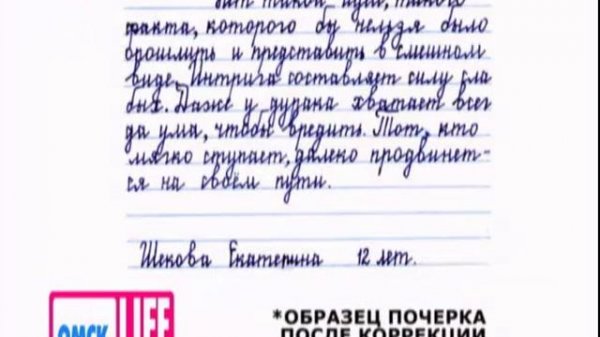 такой идеи, такого
факта, которого бы нельзя было
опошлить и представить в смешном
виде. Интрига составляет силу сла
бых. Даже у дурака хватает всег
да ума, чтобы вредить. Тот, кто
мягко ступает, далеко продвинет-
ся на своём пути.
Шекова Екатерина 12 лет.
ОМСК LIFE
*ОБРАЗЕЦ ПОЧЕРКА
ПОСЛЕ КОРРЕКЦИИ